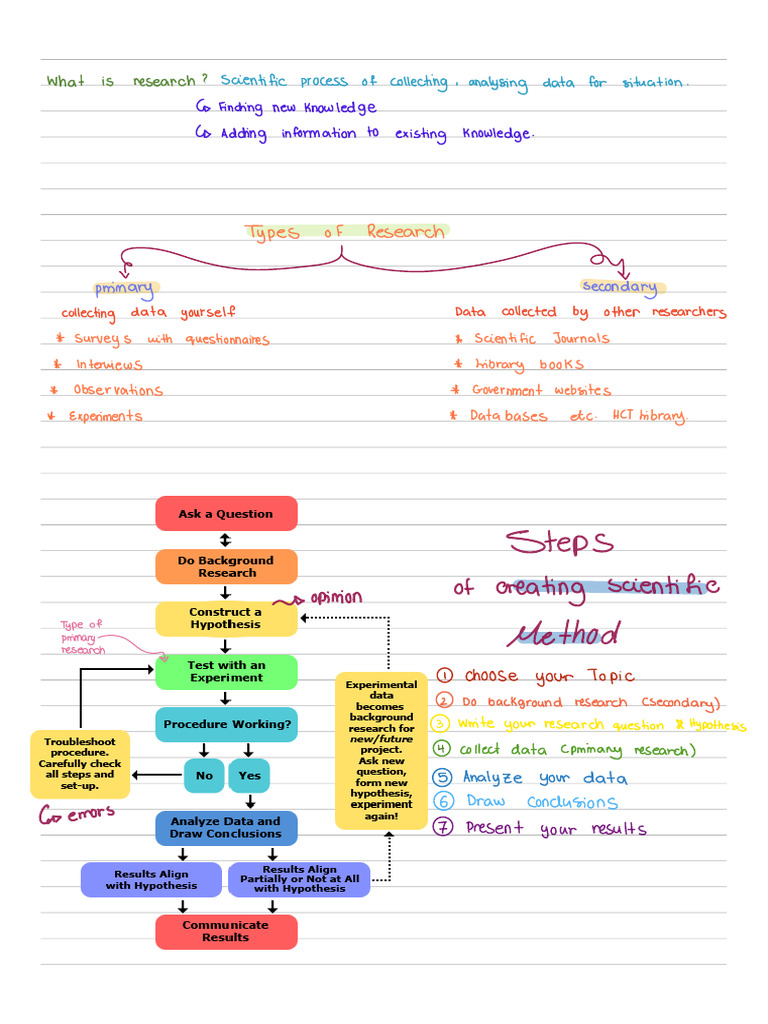 What is research? Scientific process of collecting, analysing data for situation.
↳ Finding new knowledge
↳ Adding information to existing knowledge.
Types of Research
primary
secondary
collecting data yourself
* Surveys with questionnaires
* Interviews
* Observations
* Experiments
Data collected by other researchers
* Scientific Journals
* Library books
* Government websites
* Data bases etc. HCT library.
Ask a Question
Do Background
Research
Construct a
Hypothesis
opinion
Type of
primary
research
Test with an
Experiment
Procedure Working?
No
Yes
Troubleshoot
procedure.
Carefully check
all steps and
set-up.
↳ errors
Analyze Data and
Draw Conclusions
Results Align
with Hypothesis
Results Align
Partially or Not at All
with Hypothesis
Communicate
Results
Experimental
data
becomes
background
research for
new/future
project.
Ask new
question,
form new
hypothesis,
experiment
again!
Steps
of creating scientific
Method
① choose your Topic
② Do background research (secondary)
③ Write your research question & Hypothesis
④ collect data (primary research)
⑤ Analyze your data
⑥ Draw conclusions
⑦ Present your results